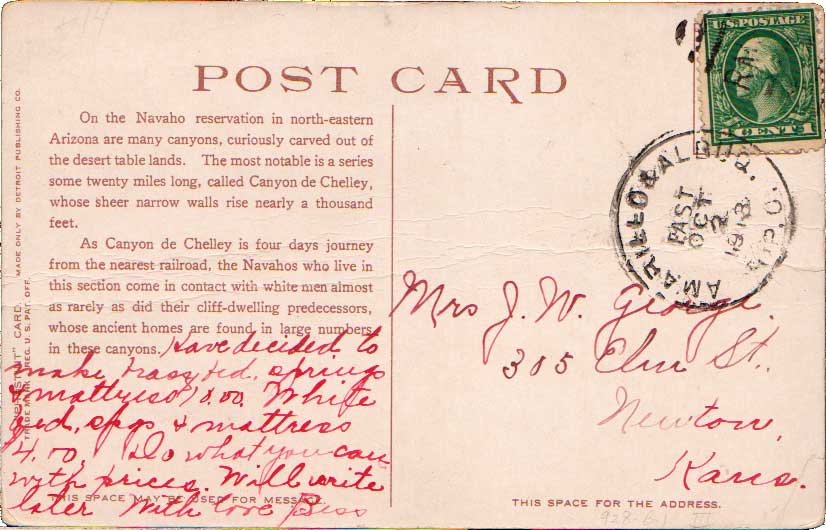 #14
POST CARD
U.S. POSTAGE
1 CENTS 1
AMARILLO & ALBUQ.
R.P.O.
EAST
OCT
2
1913
On the Navaho reservation in north-eastern
Arizona are many canyons, curiously carved out of
the desert table lands. The most notable is a series
some twenty miles long, called Canyon de Chelley,
whose sheer narrow walls rise nearly a thousand
feet.
As Canyon de Chelley is four days journey
from the nearest railroad, the Navahos who live in
this section come in contact with white men almost
as rarely as did their cliff-dwelling predecessors,
whose ancient homes are found in large numbers
in these canyons.
Have decided to
make brass bed, springs
& mattress 10.00. White
bed, spgs & mattress
4.00, Do what you can
with prices. Will write
later With love Bess
Mrs J. W. George.
305 Elm St.
Newton,
Kans.
"PHOSTINT" CARD MADE ONLY BY DETROIT PUBLISHING CO.
TRADE MARK REG. U. S. PAT. OFF.
THIS SPACE MAY BE USED FOR MESSAGE.
THIS SPACE FOR THE ADDRESS.